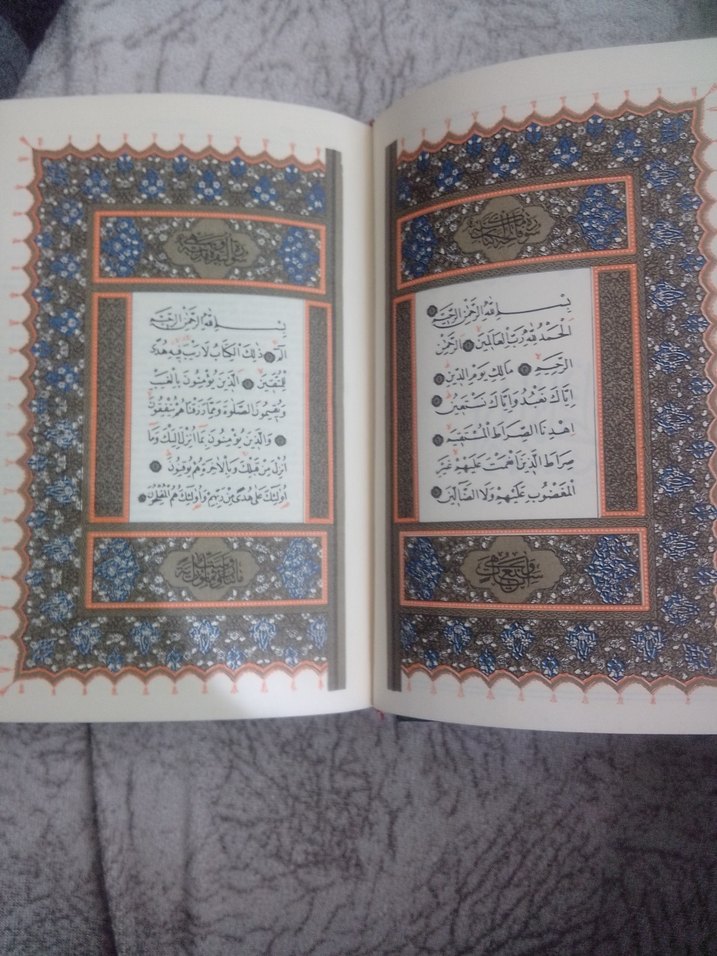 سورة فاتحة الكتاب
بسم الله الرحمن الرحيم
الحمد لله رب العالمين الرحمن
الرحيم مالك يوم الدين
اياك نعبد واياك نستعين
اهدنا الصراط المستقيم
صراط الذين انعمت عليهم غير
المغضوب عليهم ولا الضالين
وهي سبع ايات
بسم الله الرحمن الرحيم
الم ذلك الكتاب لا ريب فيه هدى
للمتقين الذين يؤمنون بالغيب
ويقيمون الصلوة ومما رزقناهم ينفقون
والذين يؤمنون بما انزل اليك وما
انزل من قبلك وبالاخرة هم يوقنون
اولئك على هدى من ربهم واولئك هم المفلحون